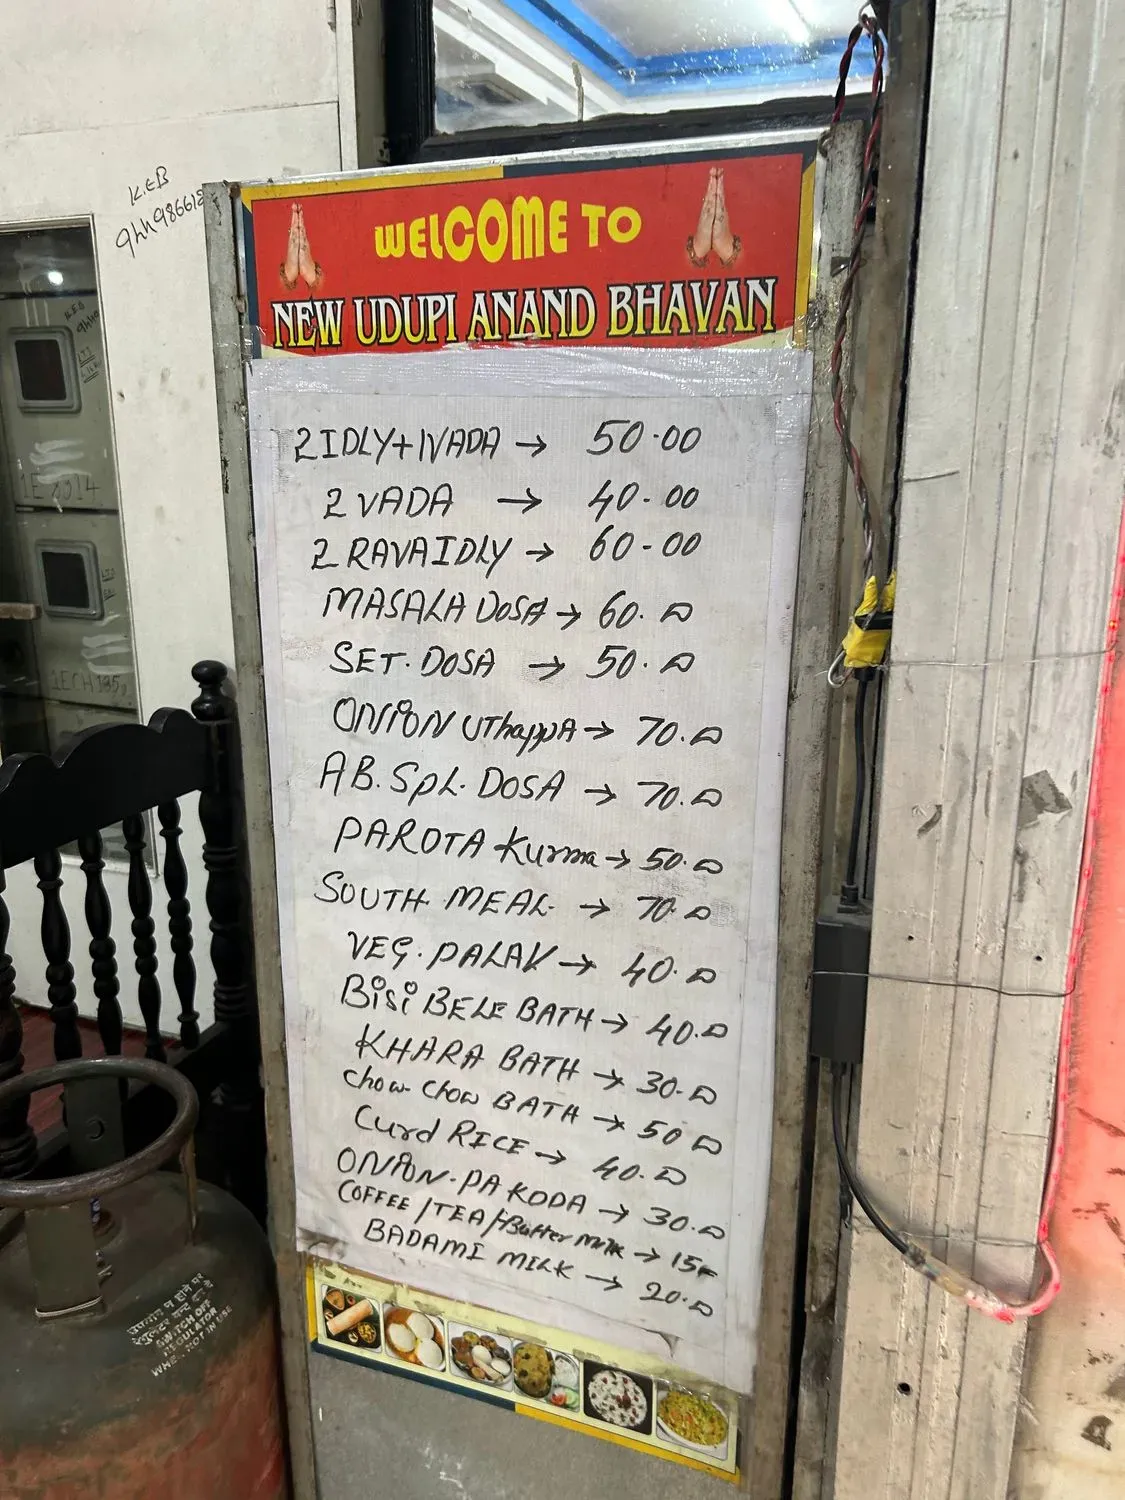 WELCOME TO
NEW UDUPI ANAND BHAVAN
2 IDLY+1VADA → 50.00
2 VADA → 40.00
2 RAVAIDLY → 60-00
MASALA DOSA → 60.00
SET. DOSA → 50.00
ONION UThappA → 70.00
AB. SpL. DOSA → 70.00
PAROTA Kurma → 50.00
SOUTH MEAL → 70.00
VEG. PALAV → 40.00
BiSi BELE BATH → 40.00
KHARA BATH → 30.00
Chow Chow BATH → 50 00
Curd RICE → 40.00
ONION. PAKODA → 30.00
COFFEE/TEA/Butter Milk → 15
BADAMI MILK → 20.00
K.EB
1ECH
SWITCH OFF
REGULATOR
WHEN NOT IN USE